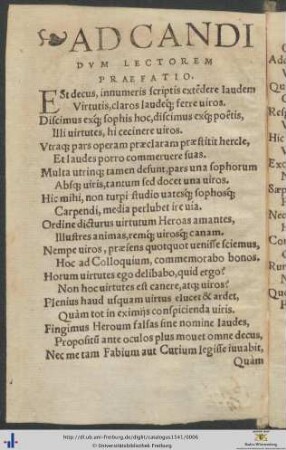 AD CANDI
DVM LECTOREM
PRAEFATIO.
ESt decus, innumeris scriptis extēdere laudem
Virtutis, claros laudeq; ferre uiros.
Discimus exq; sophis hoc, discimus exq; poëtis,
Illi uirtutes, hi cecinere uiros.
Vtraq; pars operam præclaram præstitit hercle,
Et laudes porro commeruere suas.
Multa utrinq; tamen desunt, pars una sophorum
Absq; uiris, tantum sed docet una uiros.
Hic mihi, non turpi studio uatesq; sophosq;
Carpendi, media perlubet ire uia.
Ordine dicturus uirtutum Heroas amantes,
Illustres animas, remq; uirosq; canam.
Nempe uiros, præsens quotquot uenisse sciemus,
Hoc ad Colloquium, commemorabo bonos.
Horum uirtutes ego delibabo, quid ergo?
Non hoc uirtutes est canere, atq; uiros?
Plenius haud usquam uirtus elucet & ardet,
Quàm tot in eximijs conspicienda uiris.
Fingimus Heroum falsas sine nomine laudes,
Propositū ante oculos plus mouet omne decus,
Nec me tam Fabium aut Curium legisse iuuabit,
Quàm
http://dl.ub.uni-freiburg.de/diglit/catalogus1541/0006
© Universitätsbibliothek Freiburg